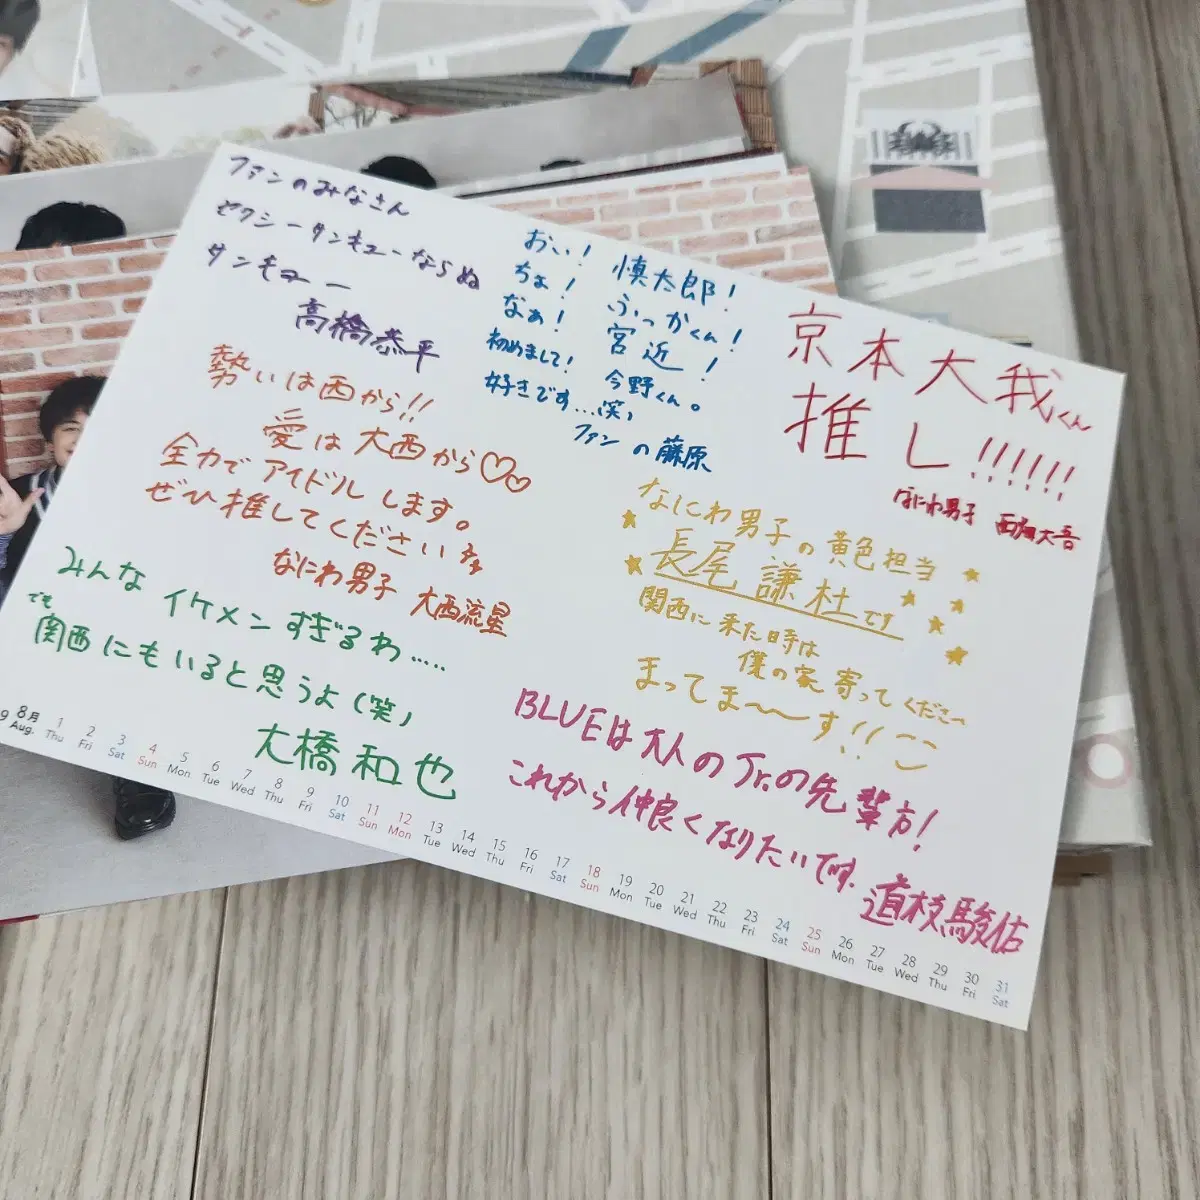 ファンのみなさん
セクシータンキューならぬ
タンキュー
高橋恭平
おい! 慎太郎!
ちょ! ふっかくん!
なぁ! 宮近!
初めまして! 今野くん。
好きです…(笑)
ファンの藤原
京本大我くん
推し!!!!!!
なにわ男子 西畑大吾
勢いは西から!!
愛は大西から♡♡
全力でアイドルします。
ぜひ推してください
なにわ男子 大西流星
なにわ男子の黄色担当
長尾謙杜です
関西に来た時は
僕の家寄ってくださ〜
まってま〜〜す!!
みんなイケメンすぎるわ.....
でも
関西にもいると思うよ(笑)
大橋和也
BLUEは大人のJr.の先輩方!
これから仲良くなりたいです.
道枝駿佑
9 8月 1 2 3 4 5 6 7 8 9 10 11 12 13 14 15 16 17 18 19 20 21 22 23 24 25 26 27 28 29 30 31
Aug. Thu Fri Sat Sun Mon Tue Wed Thu Fri Sat Sun Mon Tue Wed Thu Fri Sat Sun Mon Tue Wed Thu Fri Sat Sun Mon Tue Wed Thu Fri Sat